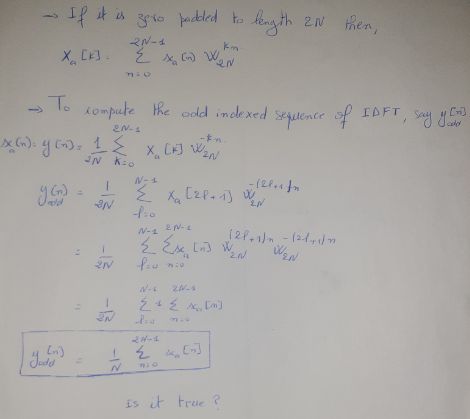 → If it is zero padded to length 2N then,
X_a [k] : \sum_{n=0}^{2N-1} x_a(n) W_{2N}^{kn}
→ To compute the odd indexed sequence of IDFT, say y_{odd}[n]
x_a(n) = y(n) = \frac{1}{2N} \sum_{k=0}^{2N-1} X_a [k] W_{2N}^{-kn}
y_{odd}[n] = \frac{1}{2N} \sum_{l=0}^{N-1} X_a [2l+1] W_{2N}^{-(2l+1)n}
= \frac{1}{2N} \sum_{l=0}^{N-1} \sum_{n=0}^{2N-1} x_a [n] W_{2N}^{(2l+1)n} W_{2N}^{-(2l+1)n}
= \frac{1}{2N} \sum_{l=0}^{N-1} 1 \sum_{n=0}^{2N-1} x_a [n]
y_{odd}[n] = \frac{1}{N} \sum_{n=0}^{2N-1} x_a [n]
Is it true ?